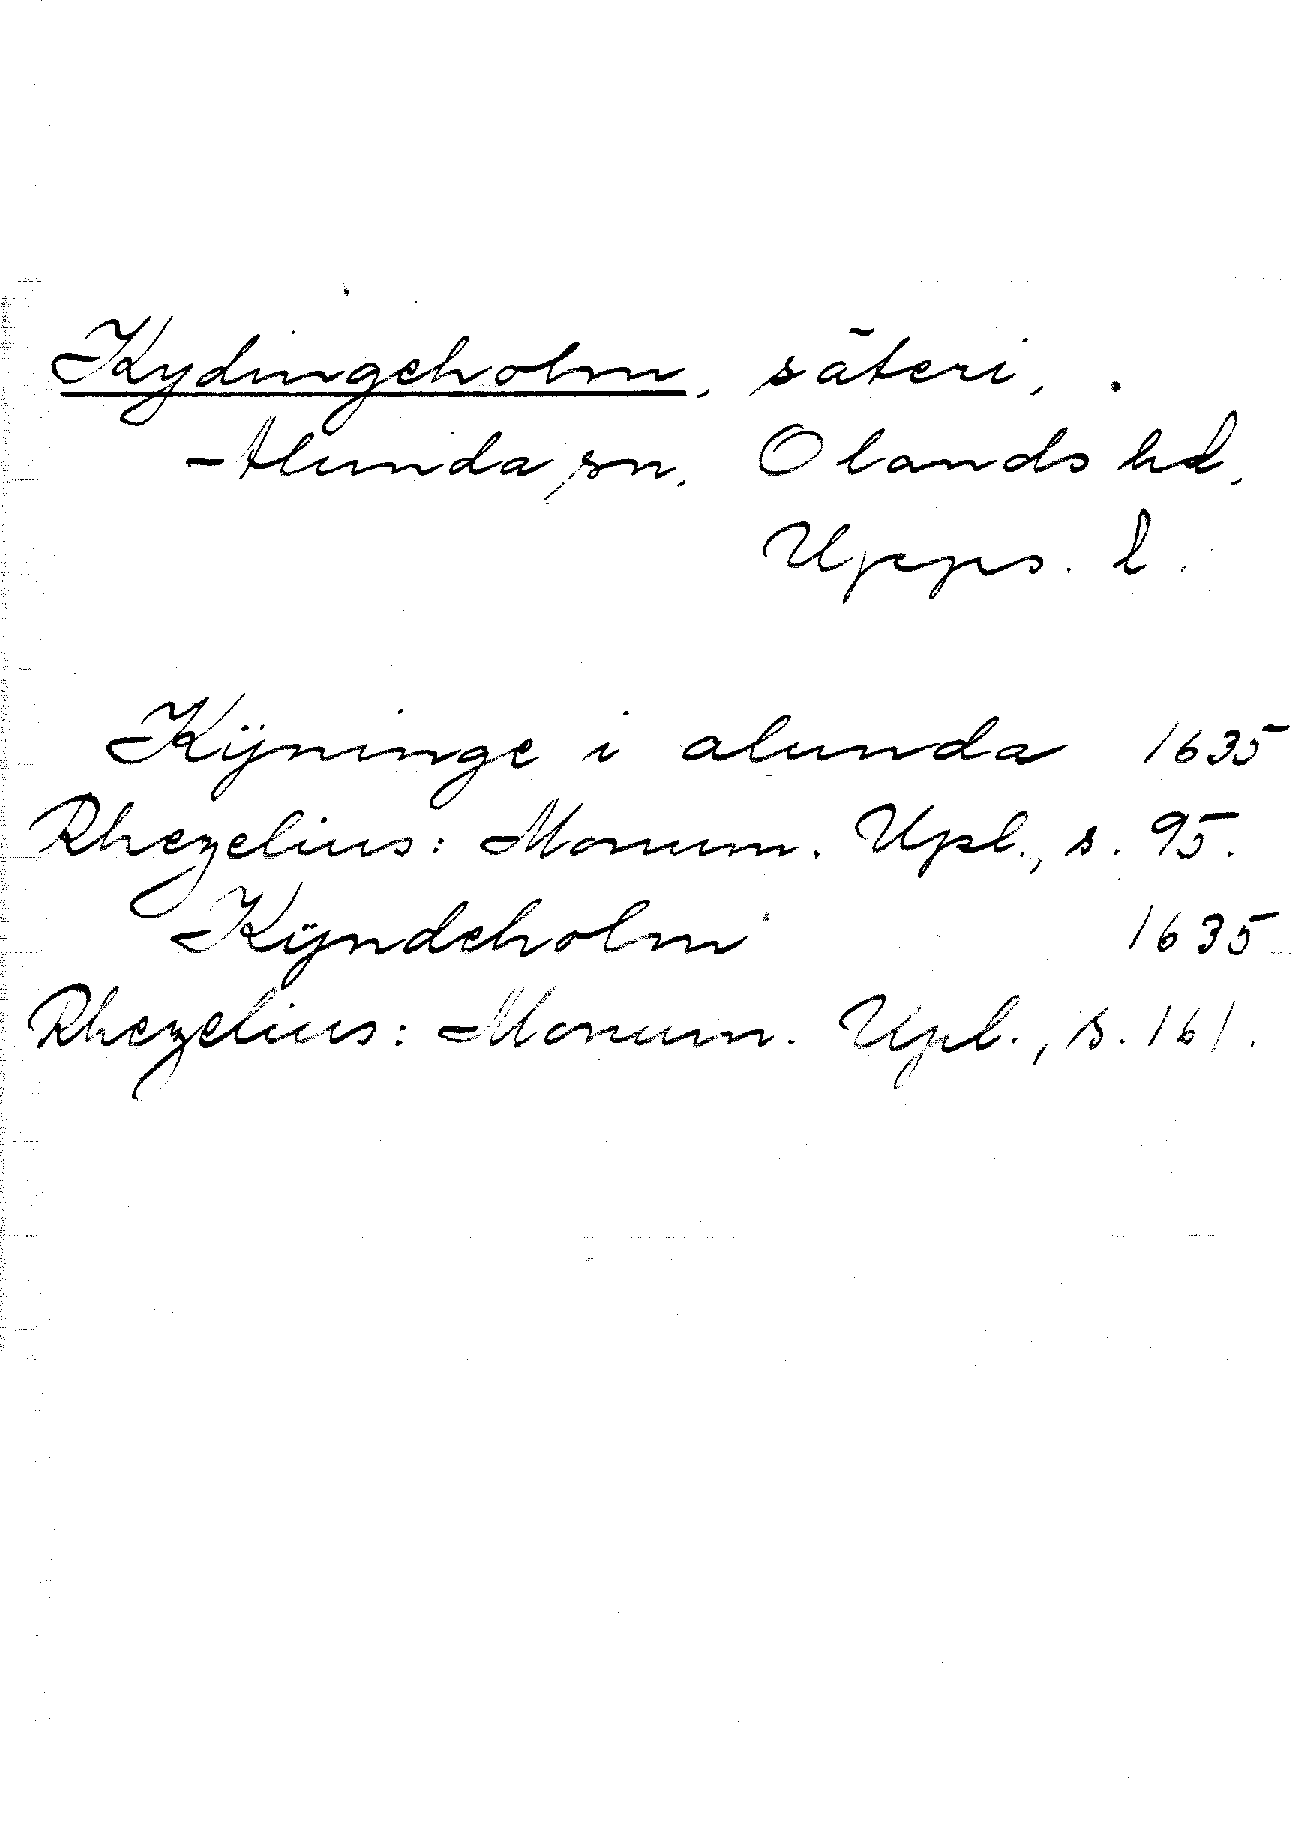 Kydingeholm, säteri,
Alunda sn. Olands hd,
Upps. l.
Kÿninge i alunda 1635
Rhezelius: Monum. Upl., s. 95.
Kÿndeholm 1635
Rhezelius: Monum. Upl., s. 161.